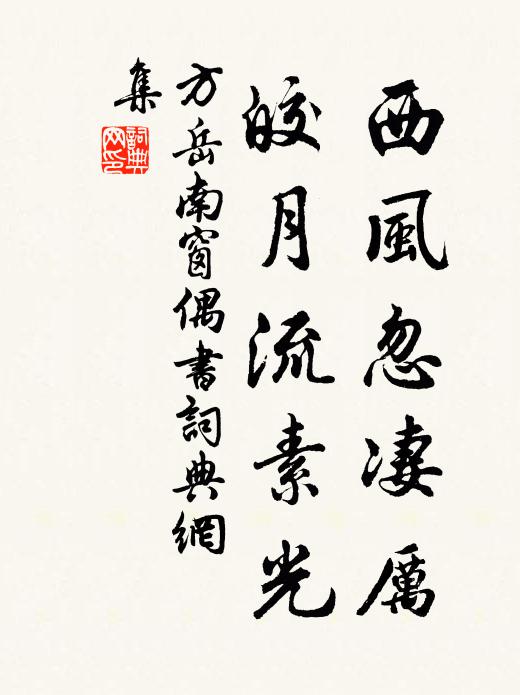 西風忽凄厲
皎月流素光
方岳南窗偶書詞典網
集
詞典
网印